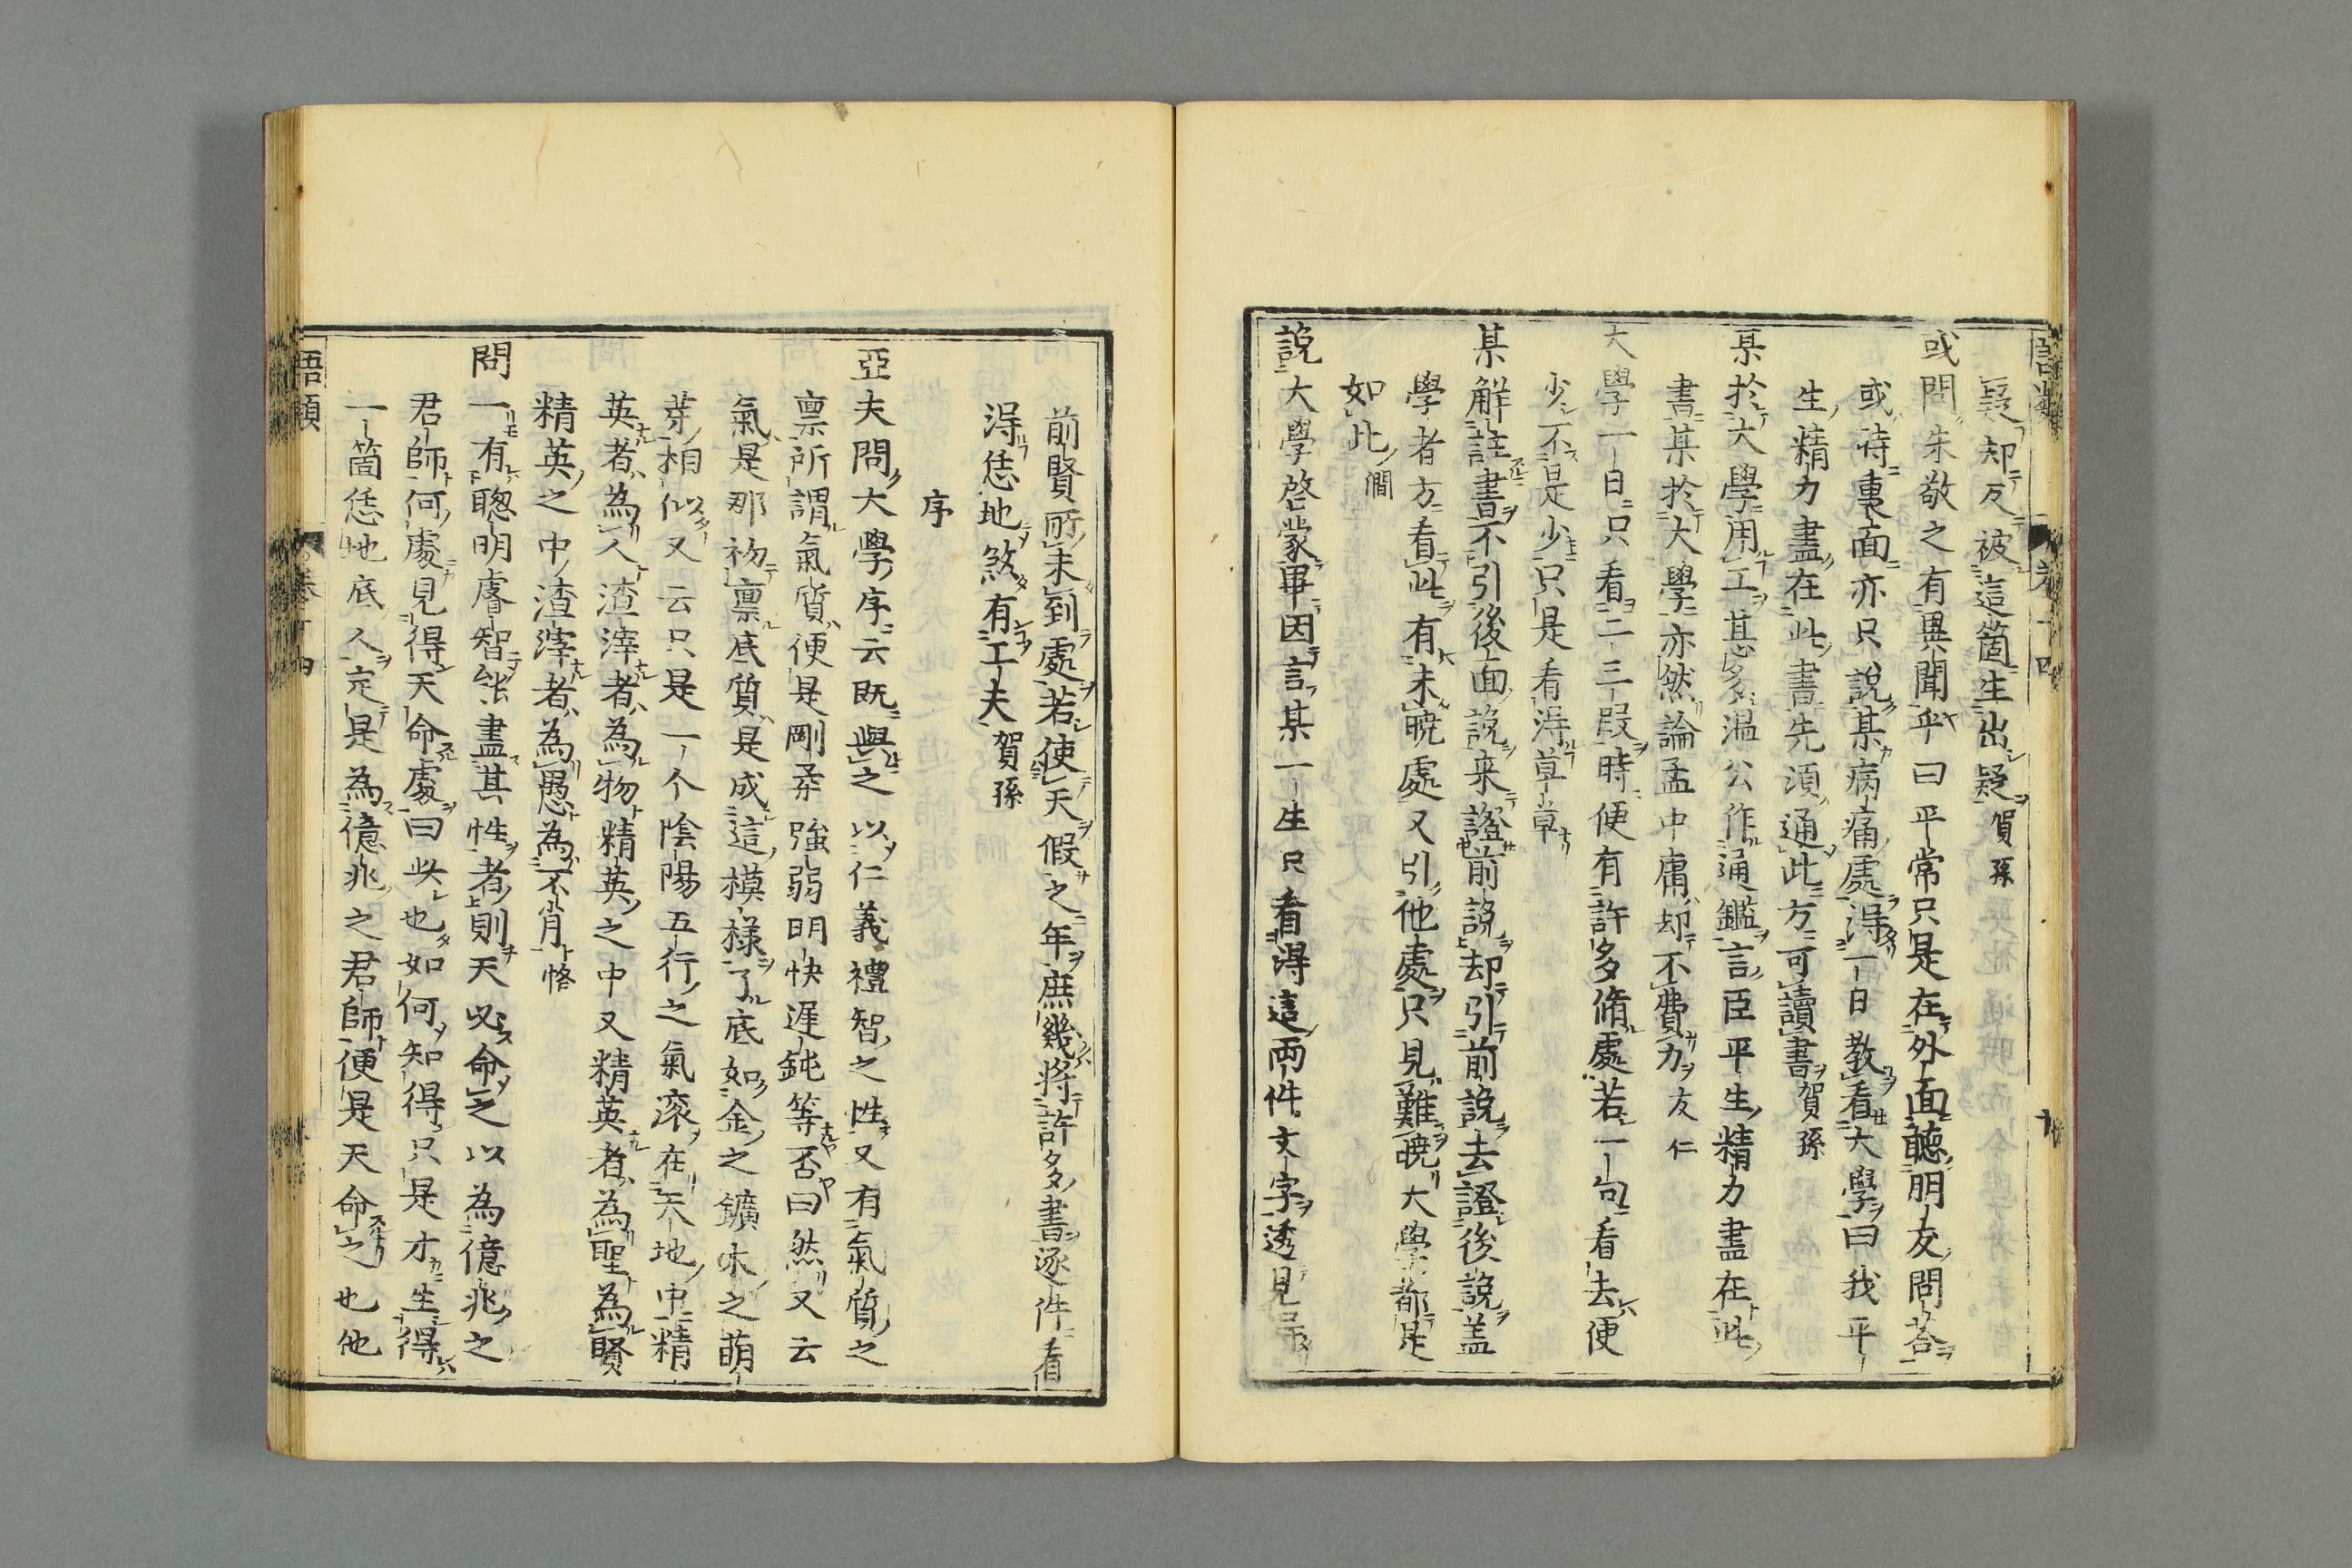 疑却反被這箇生出疑賀孫
或問朱敬之有異聞乎曰平常只是在外面聽朋友問荅
或時裏面亦只說某病痛處淂一日教看大學曰我平
生精力盡在此書先須通此方可讀書賀孫
某於大學用工甚多溫公作通鑑言臣平生精力盡在此
書某於大學亦然論孟中庸却不費力友仁
大學一日只看二三段時便有許多脩處若一句看去便
少不是少只是看淂草草
某解註書不引後面說来證前說却引前說去證後說盖
學者方看此有未曉處又引他處只見難曉大學都是
如此僩
說大學啓蒙畢因言某一生只看淂這兩件文字透見
前賢所未到處若使天假之年庶幾將許多書逐件看
淂恁地煞有工夫賀孫
序
亞夫問大學序云既與之以仁義禮智之性又有氣質之
禀所謂氣質便是剛柔強弱明快遲鈍等否曰然又云
氣是那初禀底質是成這模樣了底如金之鑛木之萌
芽相似又云只是一个陰陽五行之氣滚在天地中精
英者為人渣滓者為物精英之中又精英者為聖為賢
精英之中渣滓者為愚為不肖恪
問一有聰明睿智能盡其性者則天必命之以為億兆之
君師何處見得天命處曰此也如何知得只是才生得
一箇恁地底人定是為億兆之君師便是天命之也他
語類 卷十四